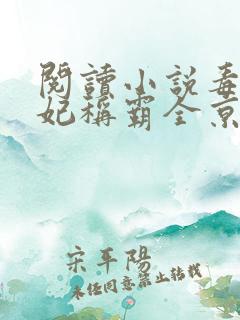 閱讀小說毒
妃稱霸全京
宋平陽
未經同意禁止轉載